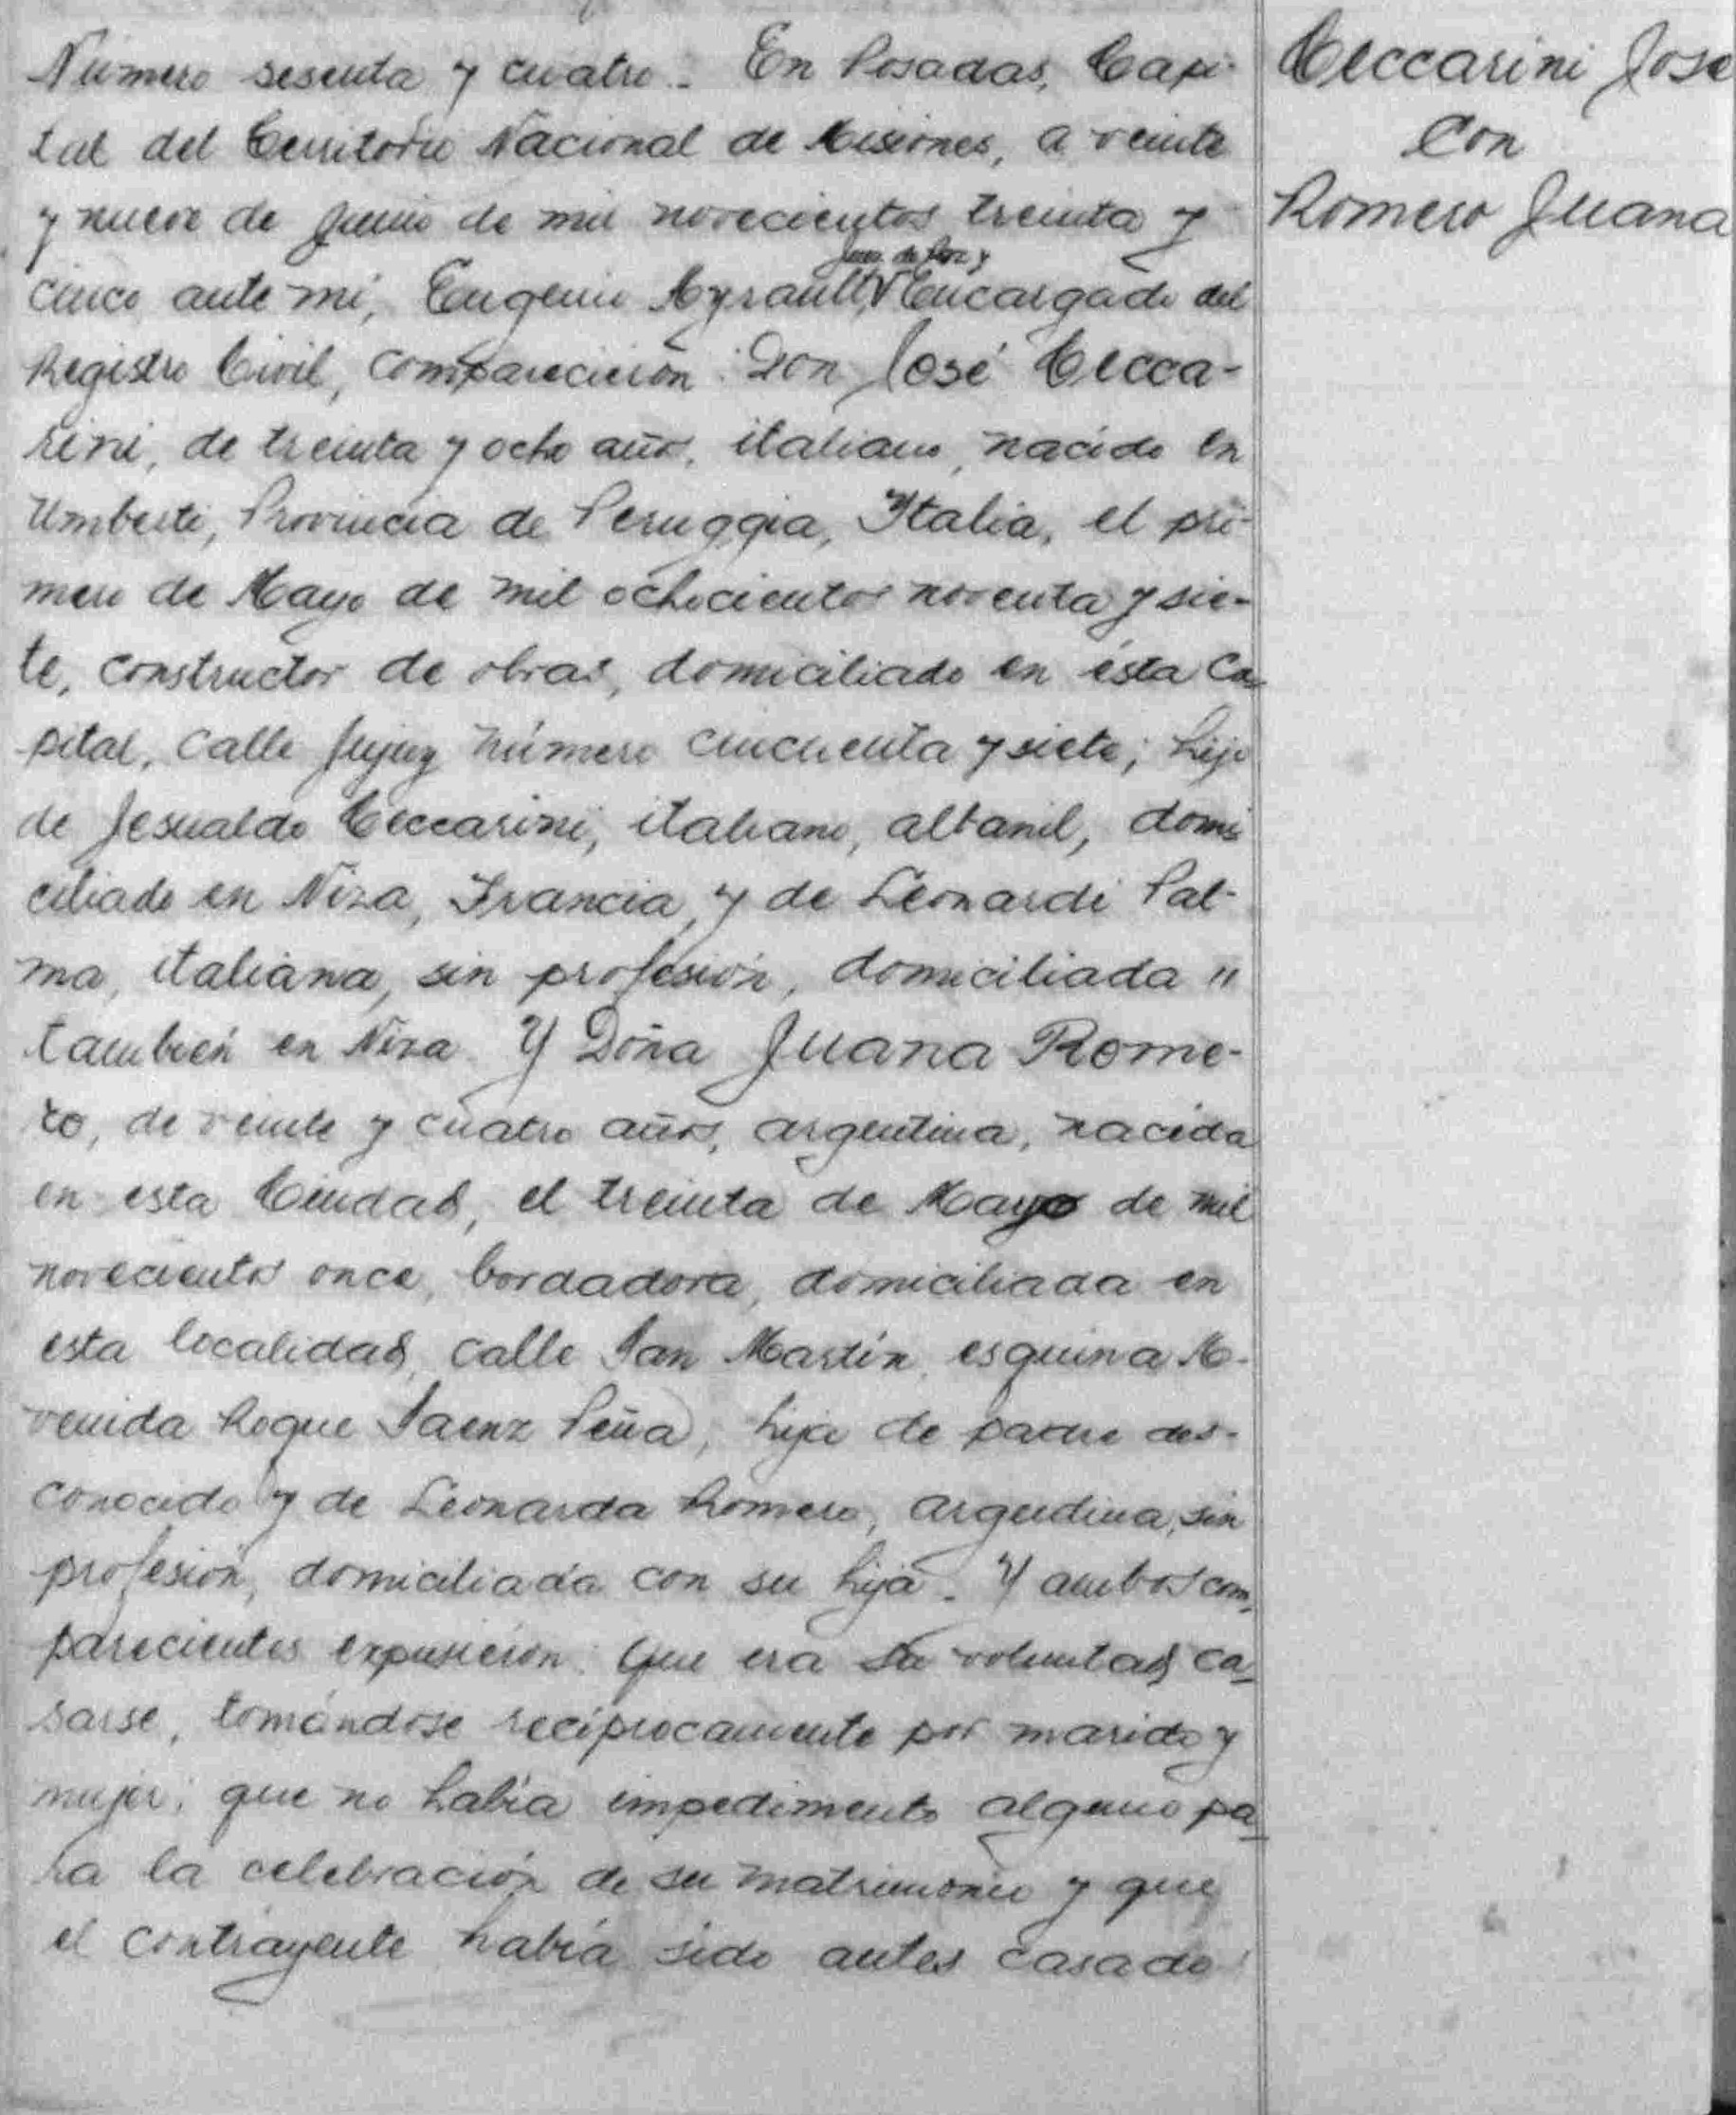 Número sesenta y cuatro.- En Posadas, Capi-
tal del Territorio Nacional de Misiones, a veinte
y nueve de Junio de mil novecientos treinta y
Juez de Paz y
cinco ante mi, Eugenio Ayrault, Encargado del
Registro Civil, comparecieron: Don José Cecca-
rini, de treinta y ocho años, italiano, nacido en
Umberti, Provincia de Peruggia, Italia, el pri-
mero de Mayo de mil ochocientos noventa y sie-
te, constructor de obras, domiciliado en ésta Ca-
pital, calle Jujuy número cincuenta y siete; hijo
de Jesualdo Ceccarini, italiano, albanil, domi
ciliado en Niza, Francia, y de Leonardi Pal-
ma, italiana, sin profesión, domiciliada "
también en Niza. Y Doña Juana Rome-
ro, de veinte y cuatro años, argentina, nacida
en esta Ciudad, el treinta de Mayo de mil
novecientos once, bordadora, domiciliada en
esta localidad, calle San Martín, esquina A-
venida Roque Saenz Peña, hija de padre des-
conocido y de Leonarda Romero, argentina, sin
profesión, domiciliada con su hija.- Y ambos com-
parecientes expusieron: Que era su voluntad ca-
sarse, tomándose recíprocamente por marido y
mujer; que no había impedimento alguno pa-
ra la celebración de su matrimonio y que
el contrayente había sido antes casado
Ceccarini José
con
Romero Juana